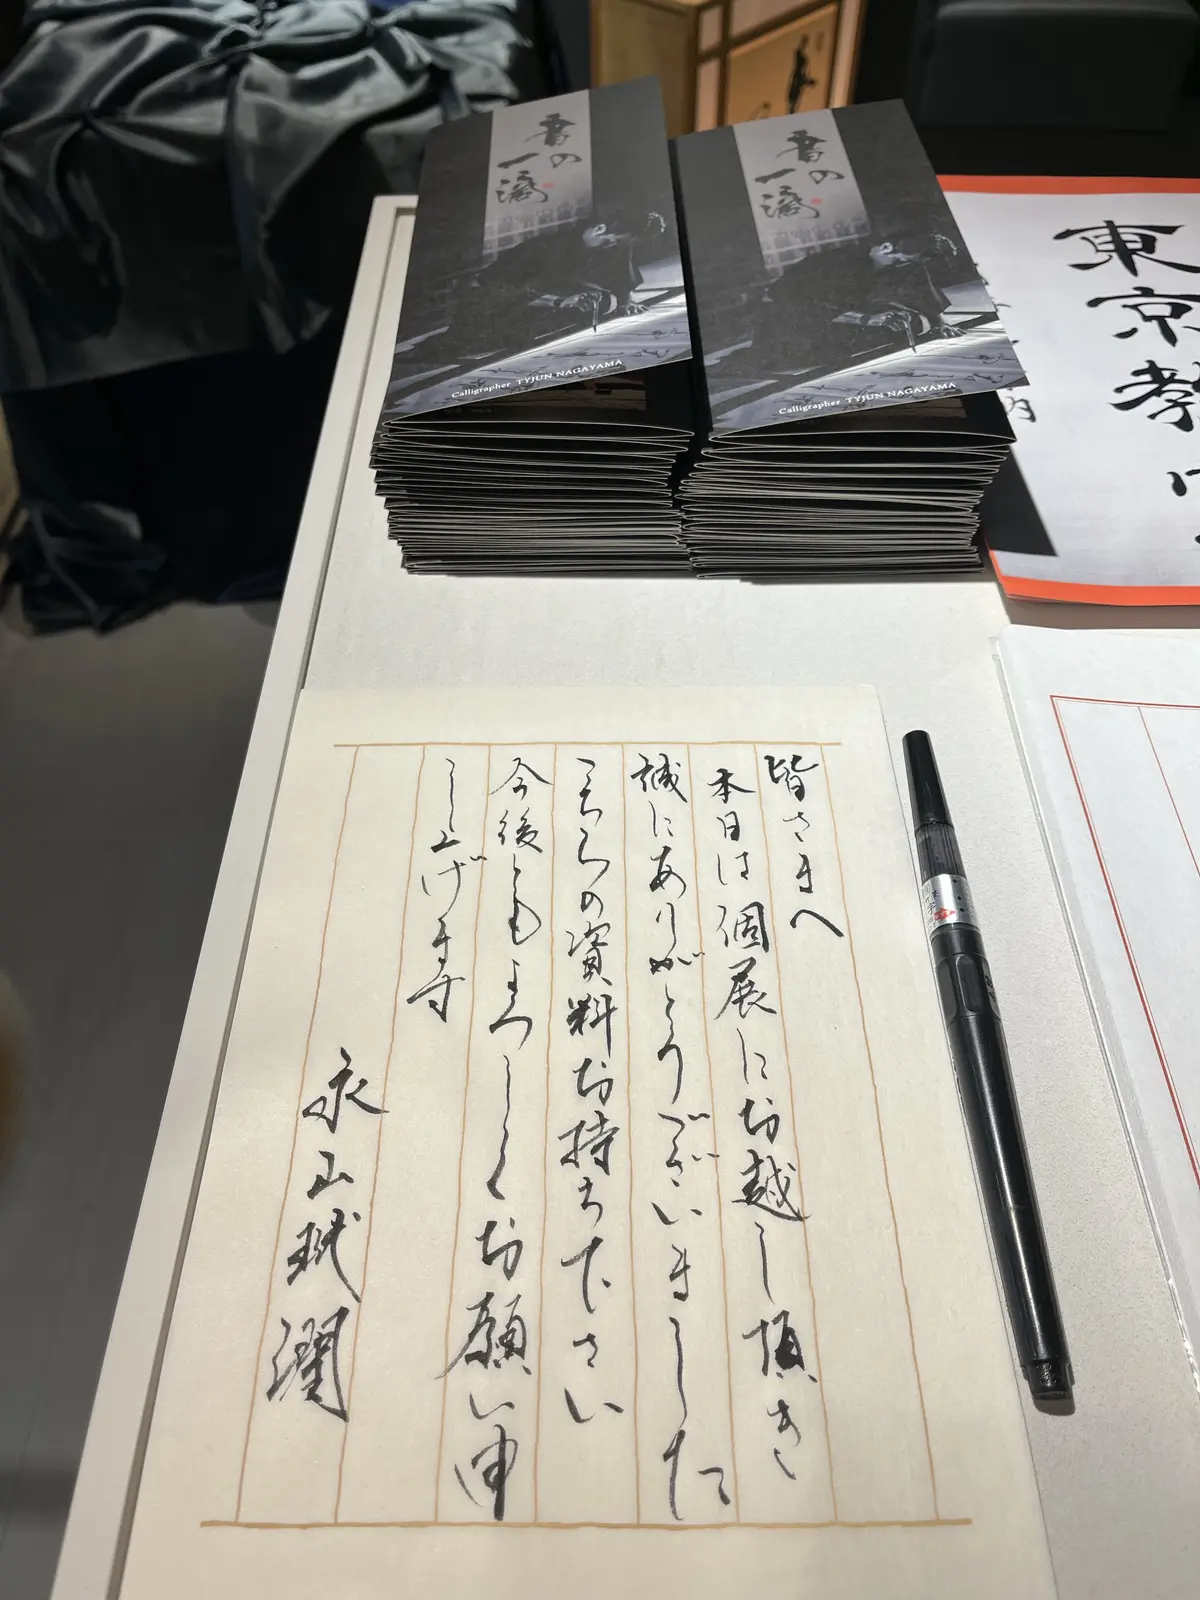 書の
一滴
Calligrapher TYJUN NAGAYAMA
書の
一滴
Calligrapher TYJUN NAGAYAMA
東京教
内
皆さまへ
本日は個展にお越し頂き
誠にありがとうございました
こちらの資料お持ち下さい
今後ともよろしくお願い申
し上げます
永山玳潤